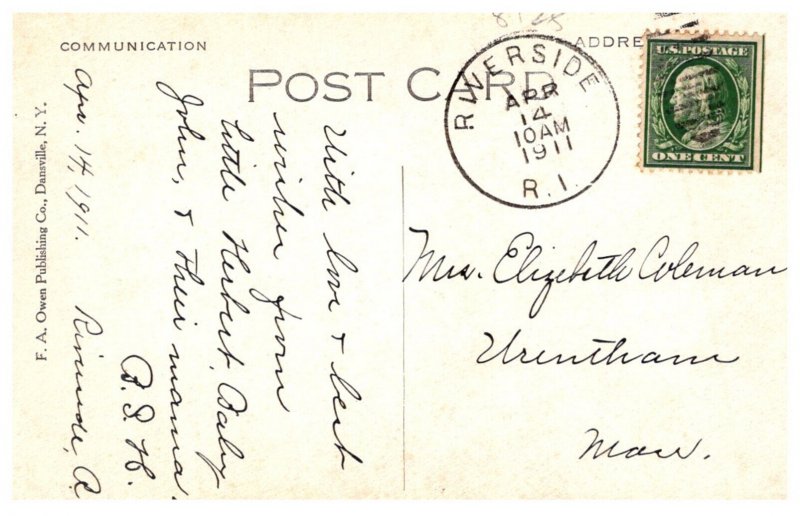 8128
COMMUNICATION
POST CARD
ADDRE
RIVERSIDE
APR
14
10AM
1911
R.I.
U.S. POSTAGE
ONE CENT
F. A. Owen Publishing Co., Dansville, N. Y.
Apr. 14, 1911. Riverside, R.
With love & best
wishes from
little Herbert, Baby
John, & their mama.
B. S. H.
Mrs. Elizabeth Coleman
Wrentham
Mass.